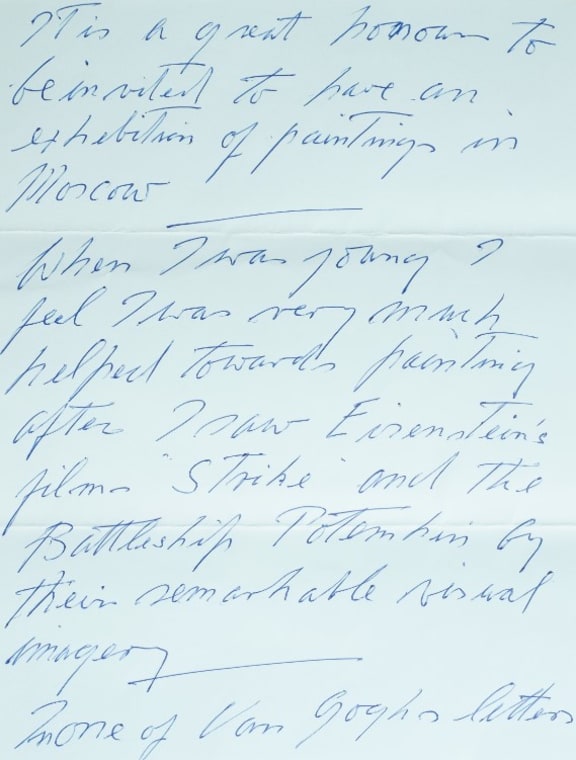 It is a great honour to
be invited to have an
exhibition of paintings in
Moscow
When I was young I
feel I was very much
helped towards painting
after I saw Eisenstein's
films "Strike" and the
Battleship Potemkin by
their remarkable visual
imagery
In one of Van Goghs letters